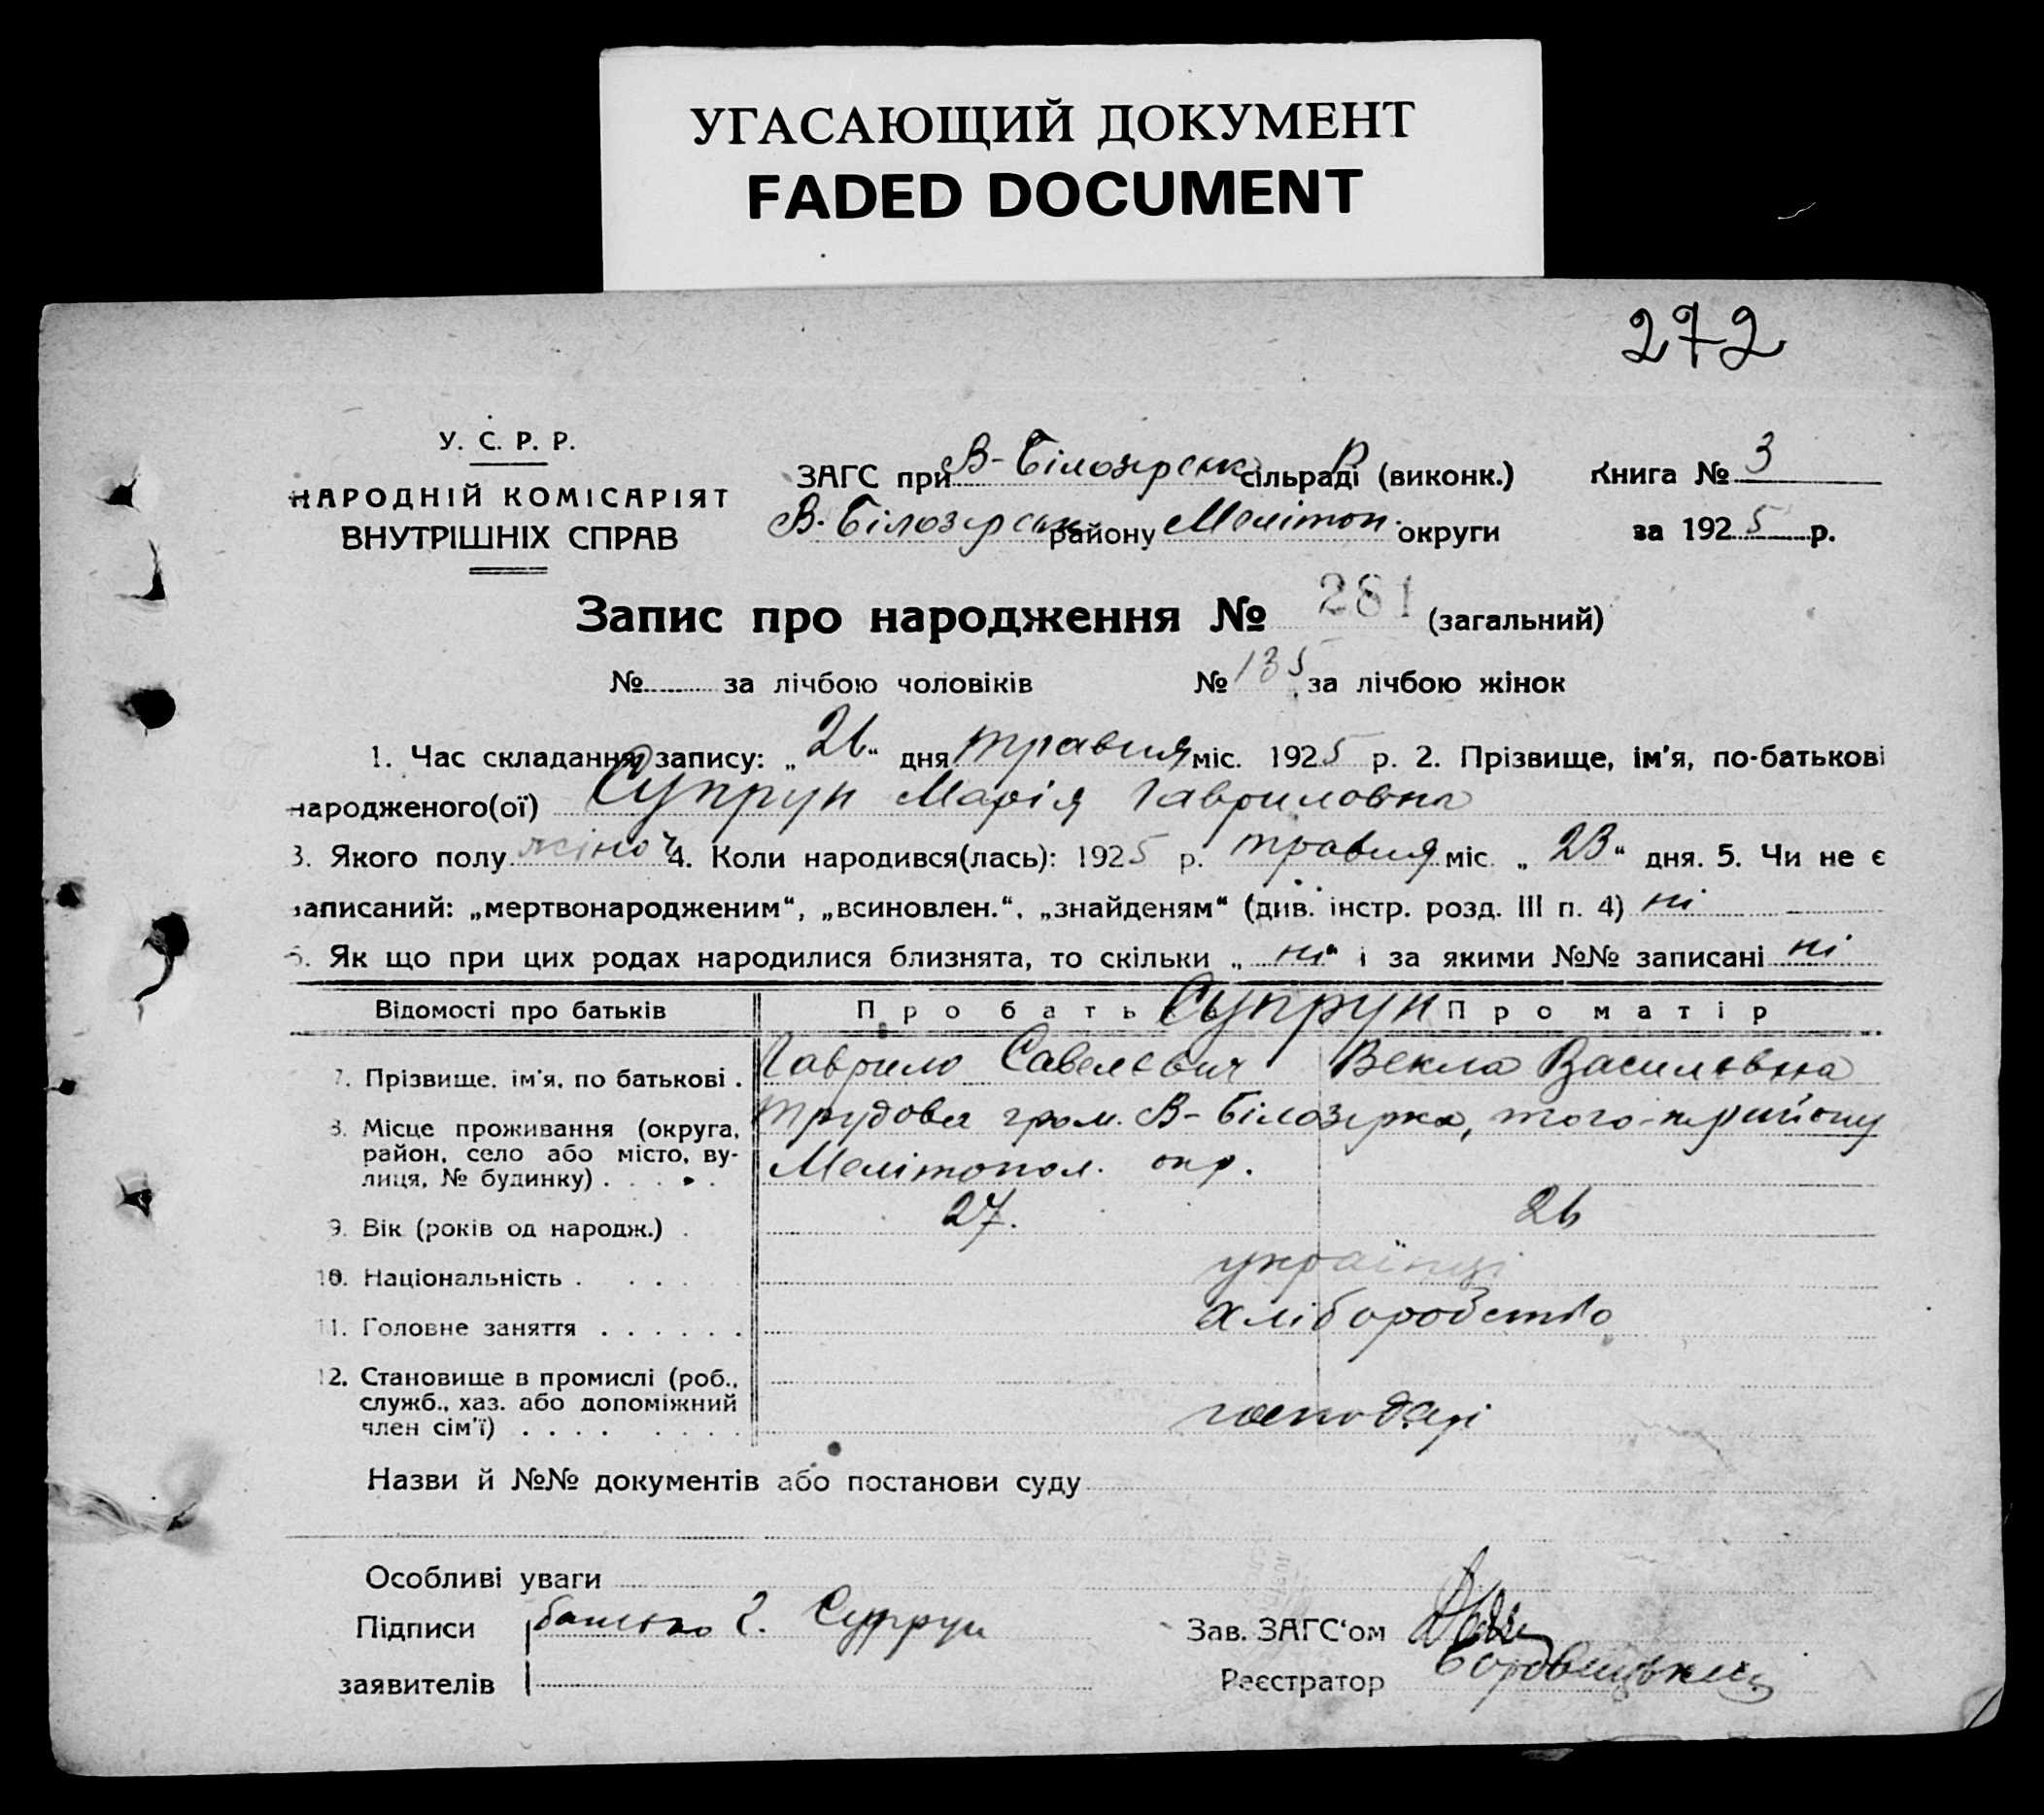 УГАСАЮЩИЙ ДОКУМЕНТ
FADED DOCUMENT
272
У. С. Р. Р.
НАРОДНІЙ КОМІСАРІЯТ
ВНУТРІШНІХ СПРАВ
ЗАГС при В-Білозірськ сільраді (виконк.) Книга № 3
В. Білозірськ району Мелітоп. округи за 1925 р.
Запис про народження № 281 (загальний)
№ за лічбою чоловіків № 135 за лічбою жінок
1. Час складання запису: „26“ дня травня міс. 1925 р. 2. Прізвище, ім'я, по-батькові
народженого(ої) Супрун Марія Гавриловна
3. Якого полу жіноч 4. Коли народився(лась): 1925 р. травня міс. „23“ дня. 5. Чи не є
записаний: „мертвонародженим“, „всиновлен.“, „знайденям“ (див. інстр. розд. III п. 4) ні
6. Як що при цих родах народилися близнята, то скільки „ні“ і за якими №№ записані ні
Відомості про батьків Про батька Супрун Про матір
7. Прізвище, ім'я, по батькові . Гаврило Савелєвич Векла Василєвна
8. Місце проживання (округа, район, село або місто, вулиця, № будинку) . . . . . Трудова гром. В-Білозірка, того-ж району
Мелітопол. окр.
9. Вік (років од народж.) . 27. 26
10. Національність . . . . українці
11. Головне заняття . . . . . . хліборобство
12. Становище в промислі (роб.,
служб., хаз. або допоміжний
член сім'ї) . . . . . . . . господарі
Назви й №№ документів або постанови суду
Особливі уваги
Підписи батько Г. Супрун Зав. ЗАГС'ом
заявителів Реєстратор